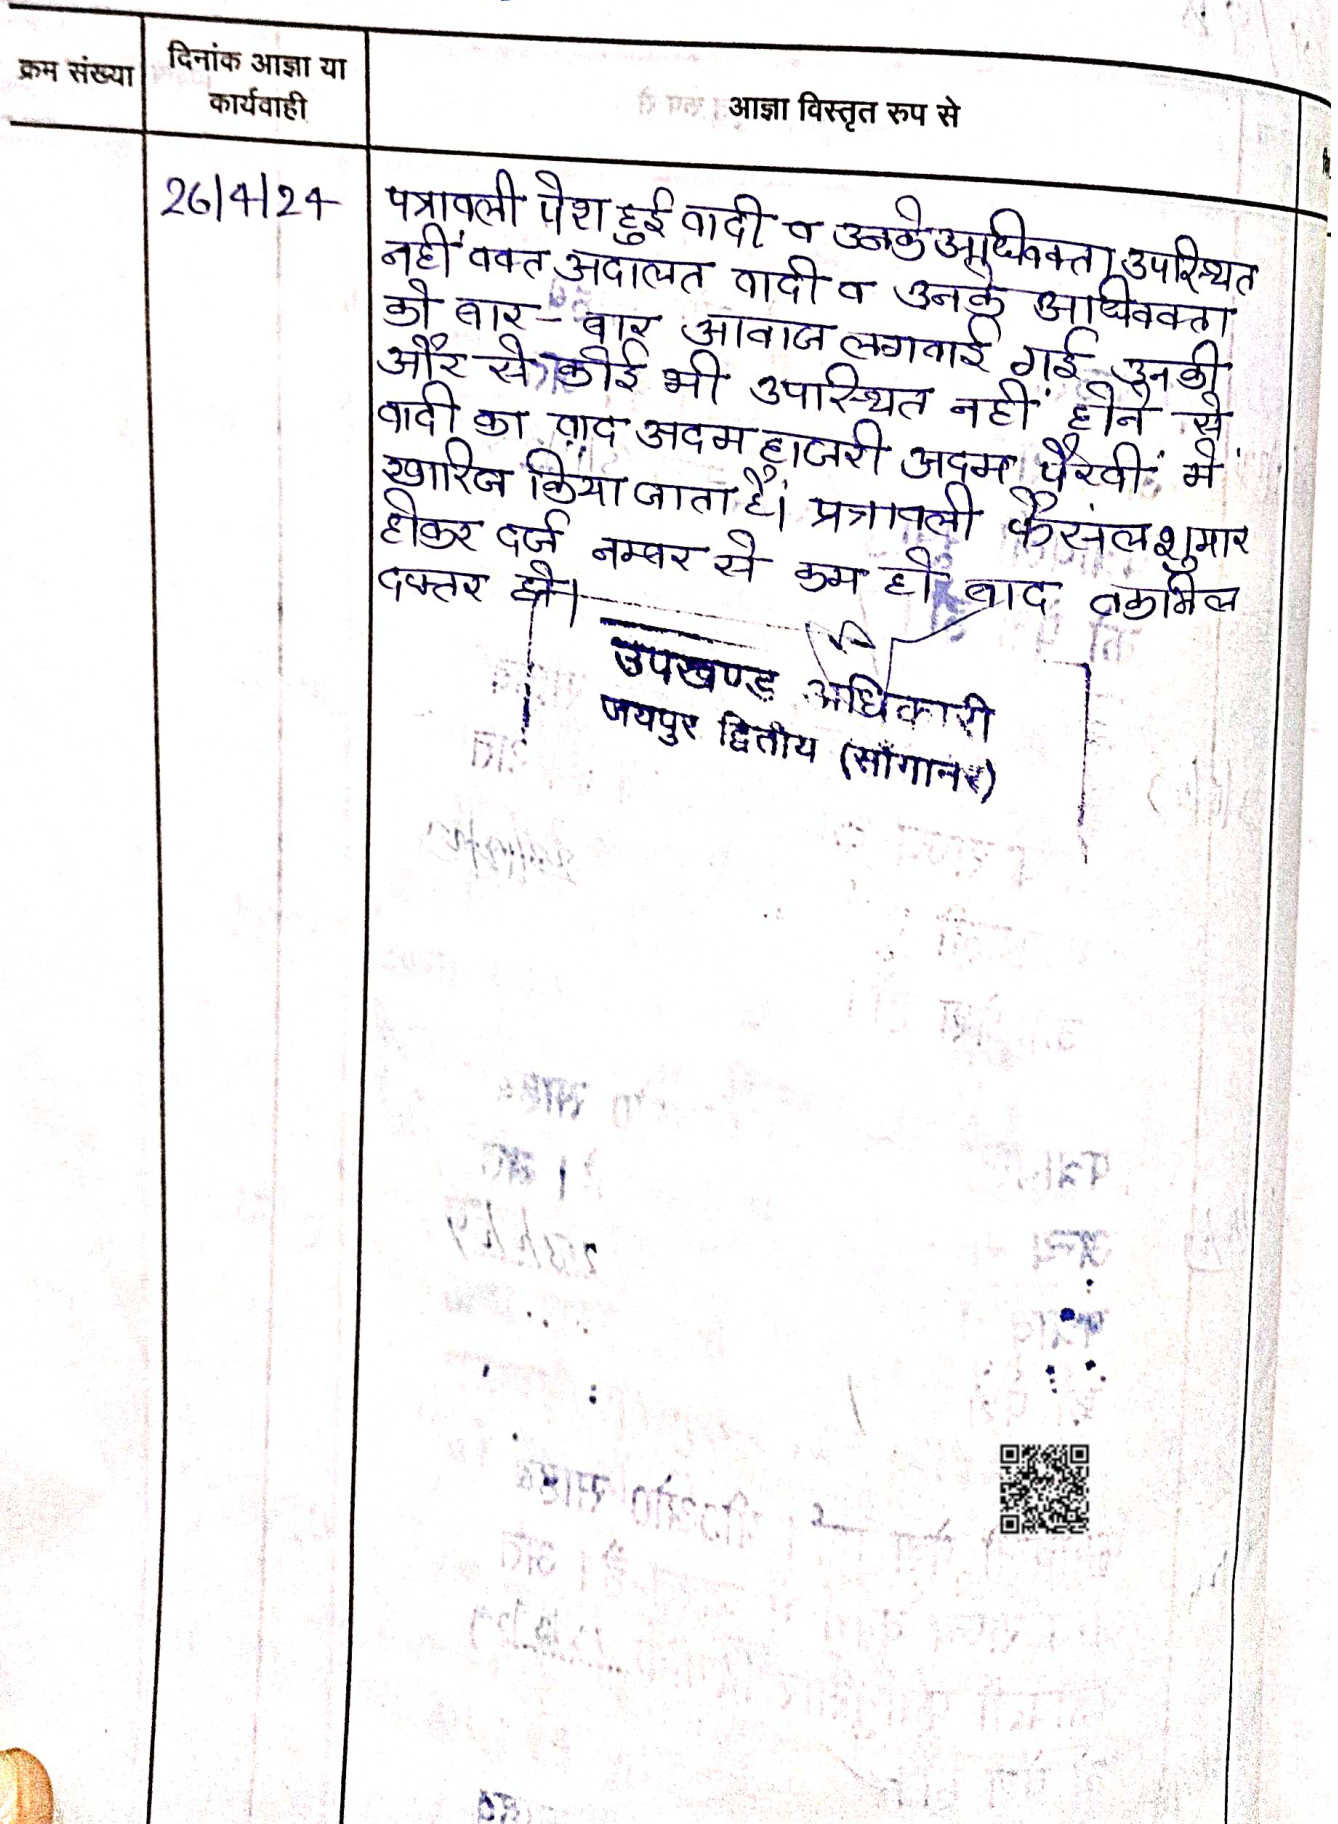 क्रम संख्या
दिनांक आज्ञा या
कार्यवाही
आज्ञा विस्तृत रुप से
26/4/24
पत्रावली पेश हुई वादी व उनके अधिवक्ता उपस्थित
नहीं वक्त अदालत वादी व उनके अधिवक्ता
को बार-बार आवाज लगवाई गई उनकी
और से कोई भी उपस्थित नहीं होने से
वादी का वाद अदम हाजरी अदम पैरवी में
खारिज किया जाता है। पत्रावली फैसल शुमार
होकर दर्ज नम्बर से कम हो बाद तकमिल
दफ्तर हो।
उपखण्ड अधिकारी
जयपुर द्वितीय (साँगानेर)